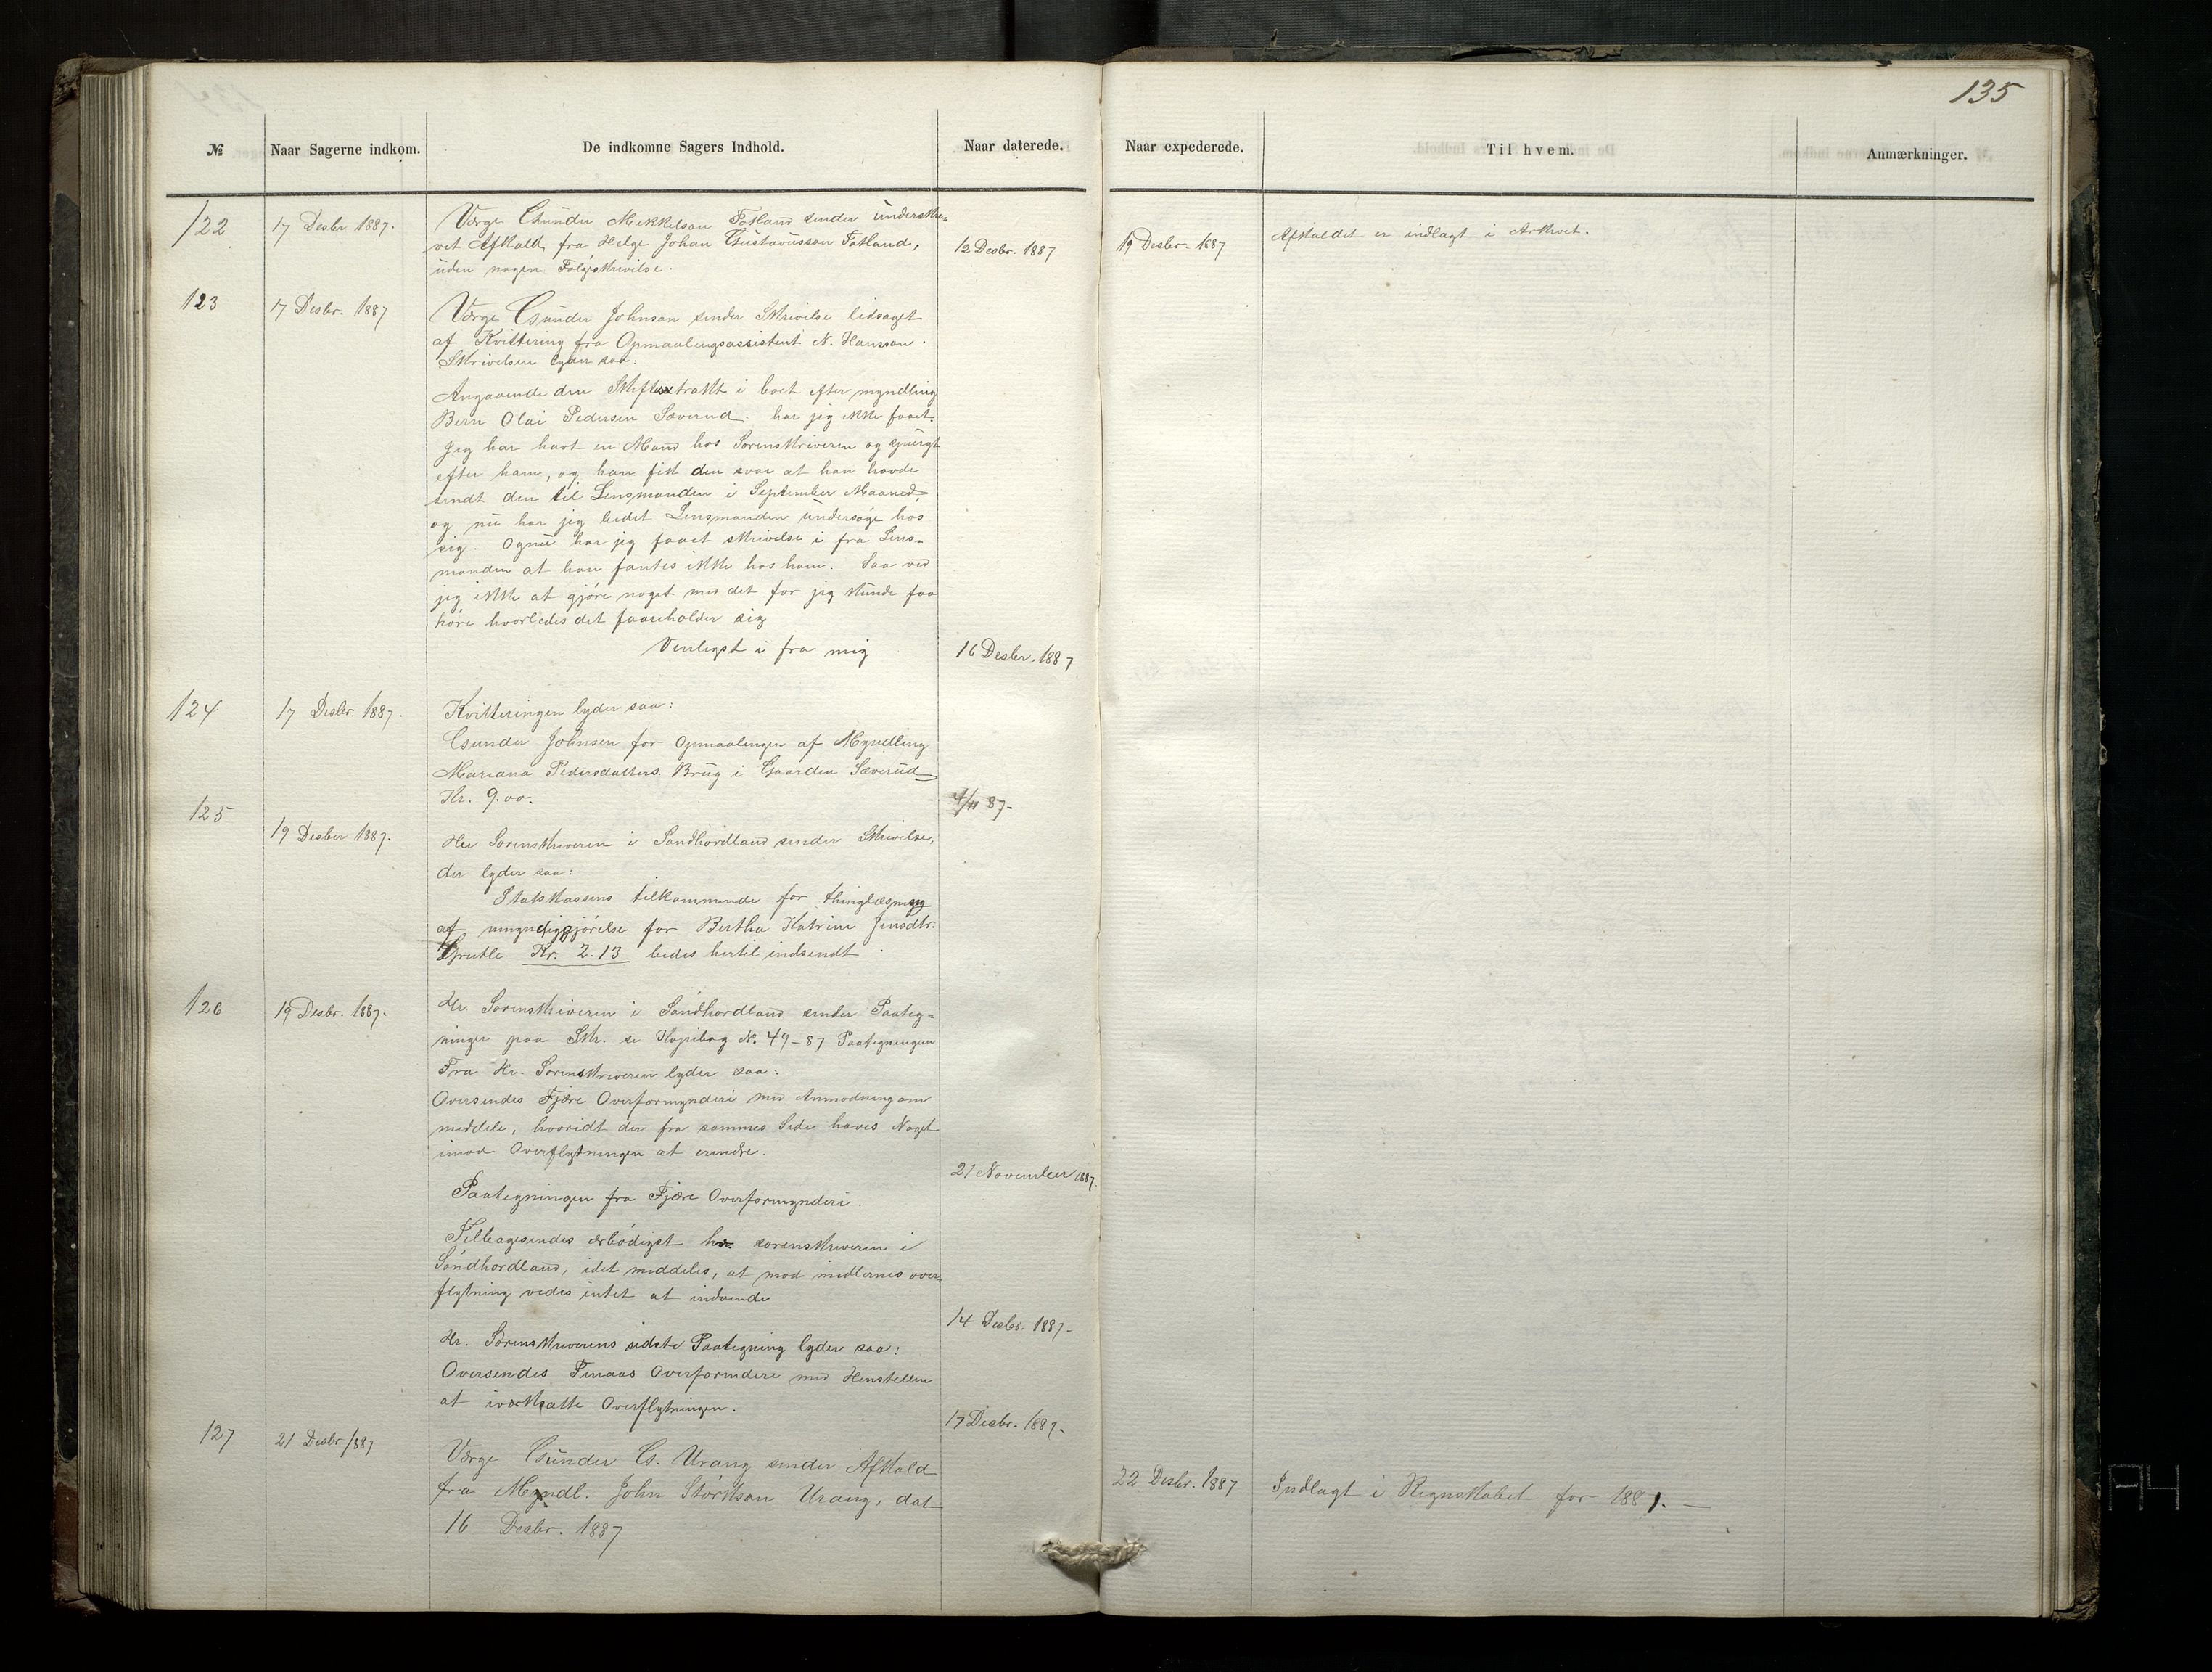 135
№
Naar Sagerne indkom.
De indkomne Sagers Indhold.
Naar daterede.
Naar expederede.
Til hvem.
Anmærkninger.
122
17 Desbr 1887.
Værge Gunder Mikkelson Fatland sender underskre-
vet Afkald fra Helge Johan Gustavusson Fatland,
uden nogen Følgeskrivelse.
12 Desbr. 1887
19 Desbr. 1887
Afkaldet er indlagt i Arkivet.
123
17 Desbr. 1887
Værge Gunder Johnson sender Skrivelse ledsaget
af Kvittering fra Opmaalingsassistent N. Hansson.
Skrivelsen lyder saa:
Angaaende den Skiftextrakt i boet efter myndling
Bern Olai Pedersen Sæverud. har jeg ikke faaet.
Jeg har havt en Mand hos Sorenskriveren og spurgt
efter ham, og han fik den svar at han havde
sendt den til Lensmanden i September Maaned,
og nu har jeg bedet Lensmanden undersøge hos
sig. Ognu har jeg faaet skrivelse i fra Lens-
manden at han fantes ikke hos ham. Saa ved
jeg ikke at gjøre noget med det for jeg kunde faa
høre hvorledes det faareholder sig
Venligst i fra mig
16 Desbr. 1887
124
17 Desbr. 1887.
Kvitteringen lyder saa:
Gunder Johnsen for Opmaalingen af Myndling
Mariana Pedersdatters Brug i Gaarden Sæverud
Kr. 9.00.
4/11 87-
125
19 Desber 1887.
Her Sorenskriveren i Søndhordland sender Skrivelse,
der lyder saa:
Statskassens tilkommende for thinglæsning
af myndiggjørelse for Bertha Katrine Jensdtr.
Grutle Kr. 2.13 bedes hertil indsendt
126
19 Desbr. 1887.
Hr Sorenskriveren i Søndhordland sender Paateg-
ninger paa Skr. se Kopibog No. 49-87 Paategningen
Fra Hr. Sorenskriveren lyder saa:
Oversendes Fjære Overformynderi med Anmodning om
meddele, hvorvidt der fra sammes Side haves Noget
imod Overflytningen at erindre.
21 November 1887.
Paategningen fra Fjære Overformynderi.
Tilbagesendes ærbødigst hr. sorenskriveren i
Søndhordland, idet meddeles, at mod midlernes over-
flytning vedes intet at indvende
14 Desbr. 1887-
Hr. Sorenskriverens sidste Paategning lyder saa:
Oversendes Finaas Overformderi med Henstellen
at iværksætte Overflytningen.
17 Desbr. 1887-
127
21 Desbr /887
Værge Gunder G. Urang sender Afkald
fra Myndl. John Størkson Urang, dat
16 Desbr. 1887
22 Desbr. 1887
Indlagt i Regnskabet for 1887. —